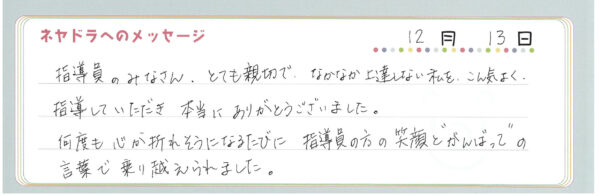 ネヤドラへのメッセージ 12月 13日
指導員のみなさん、とても親切で、なかなか上達しない私を、こん気よく、
指導していただき 本当に ありがとうございました。
何度も 心が折れそうになるたびに 指導員の方の 笑顔と"がんばって"の
言葉で 乗り越えられました。